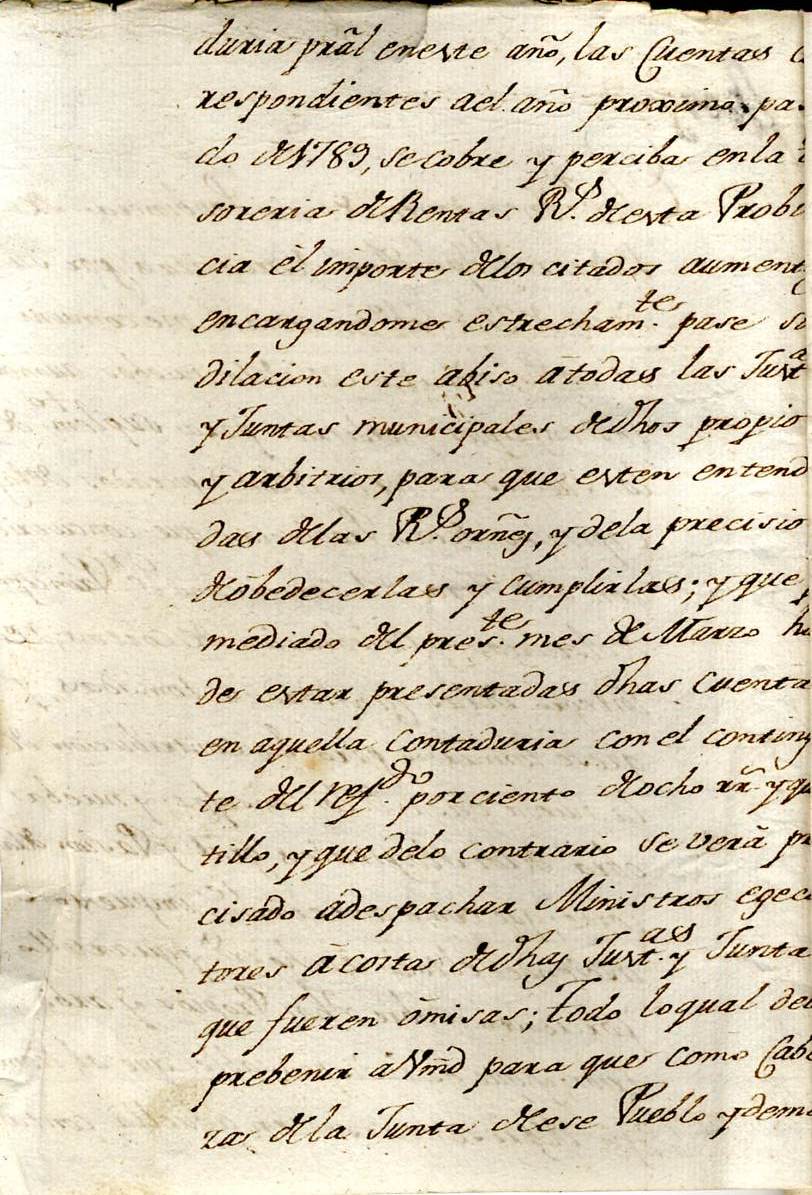 duria prãl eneste año, las Cuentas c
respondientes ael año proximo pa
do de 1789, se cobre y perciba en la t
soreria de Rentas R.s de esta Probi
cia él importe de los citados aument
encargandome estrecham.te pase si
dilacion este abiso átodas las Just.a
y Juntas municipales de dhos propio
y arbitrios, para que esten entend
das de las R.s orñes, y dela precisio
de obedecerlas y cumplirlas; y que p
mediado del pres.te mes de Marzo ha
de estar presentadas dhas cuenta
en aquella Contaduria con el conting
te del ref.do por ciento de ocho rr.s y qua
tillo, y que delo contrario se verá pr
cisado adespachar Ministros egecu
tores ácosta de dhas Just.as y Junta
que fueren ómisas; todo loqual deb
prebenir á Vmd para que como Cabe
za de la Junta de ese Pueblo y dema